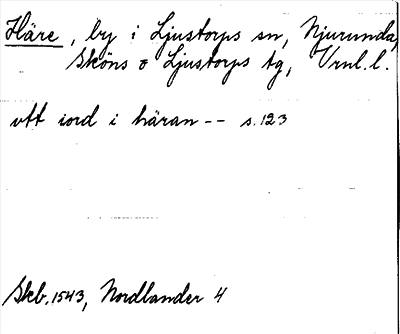 Häre, by i Ljustorps sn, Njurunda,
Sköns o Ljustorps tg, Vrnl. l.
vtt iord i häran -- s. 123
Skb. 1543, Nordlander 4